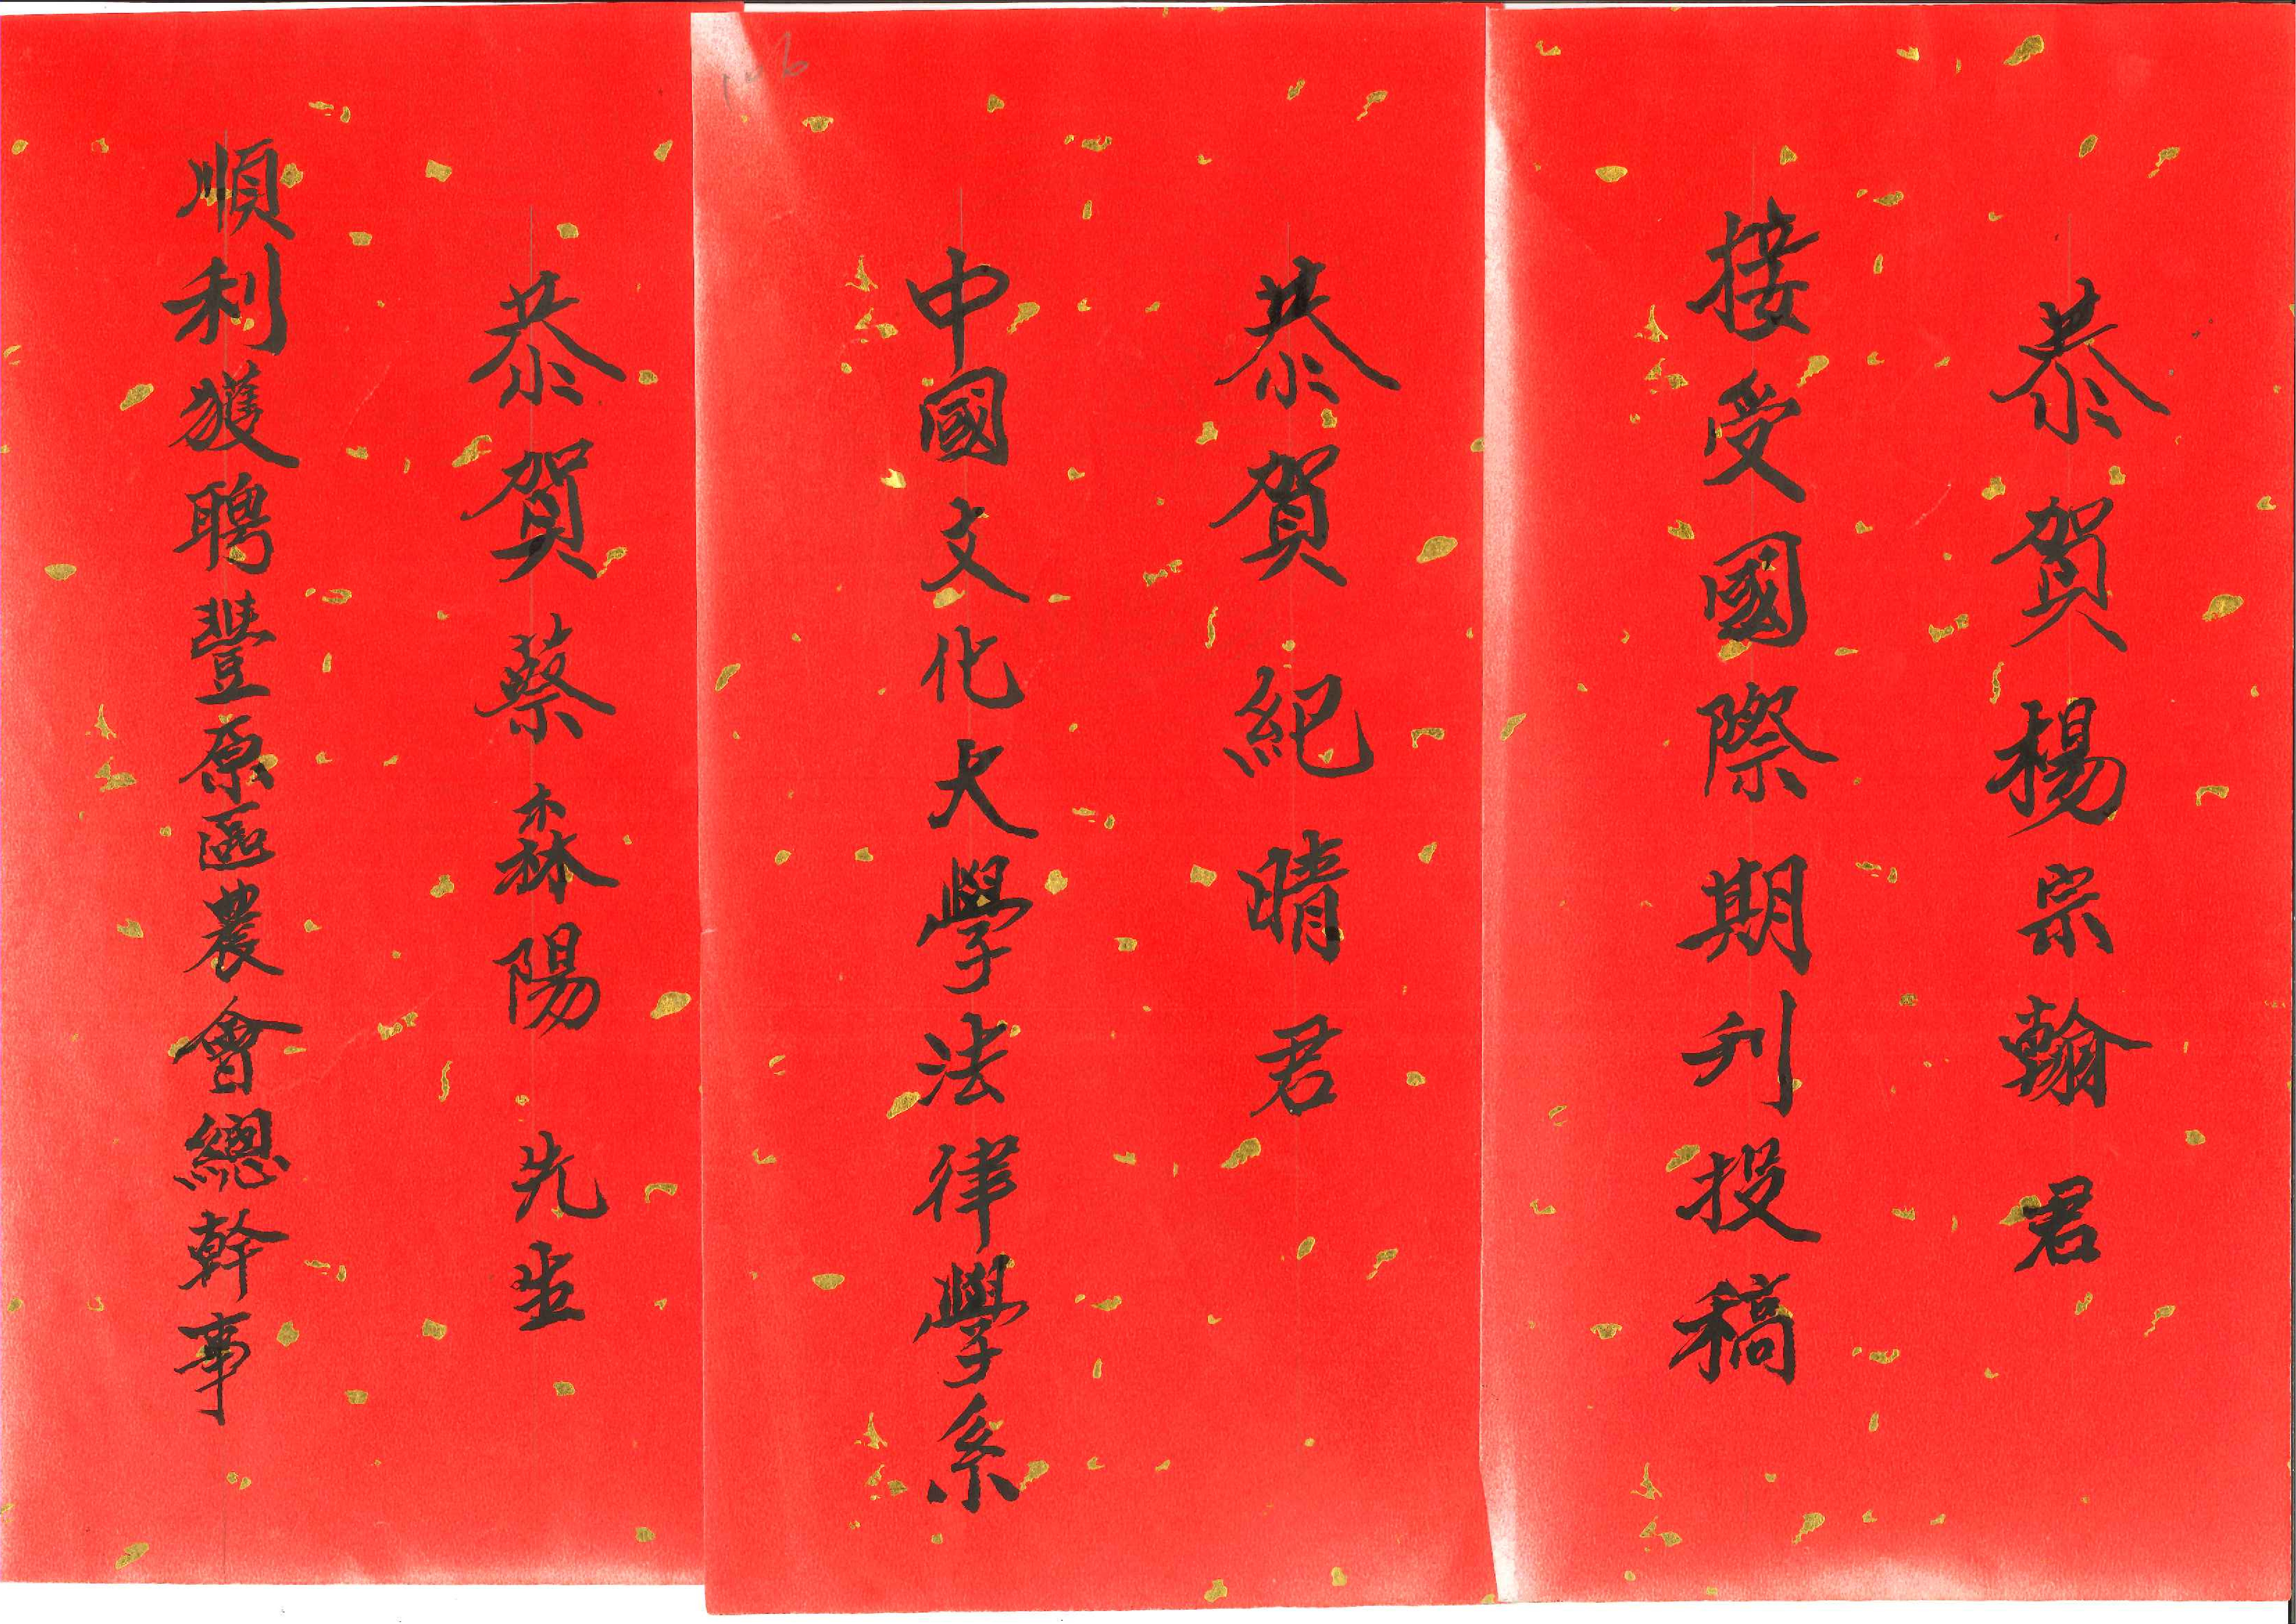 恭賀楊宗翰君
接受國際期刊投稿
恭賀紀晴君
中國文化大學法律學系
恭賀蔡森陽先生
順利獲聘豐原區農會總幹事
106